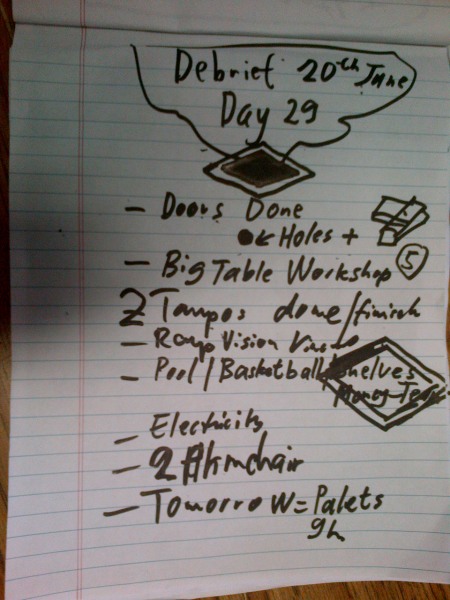 Debrief 20th June
Day 29
- Doors Done
Holes +
- Big Table Workshop
5
2 Tampos dome/finish
- Ramp Vision
- Pool/Basketball/shelves
Money
- Electricity
- 2 Armchair
- Tomorrow = Palets
9h